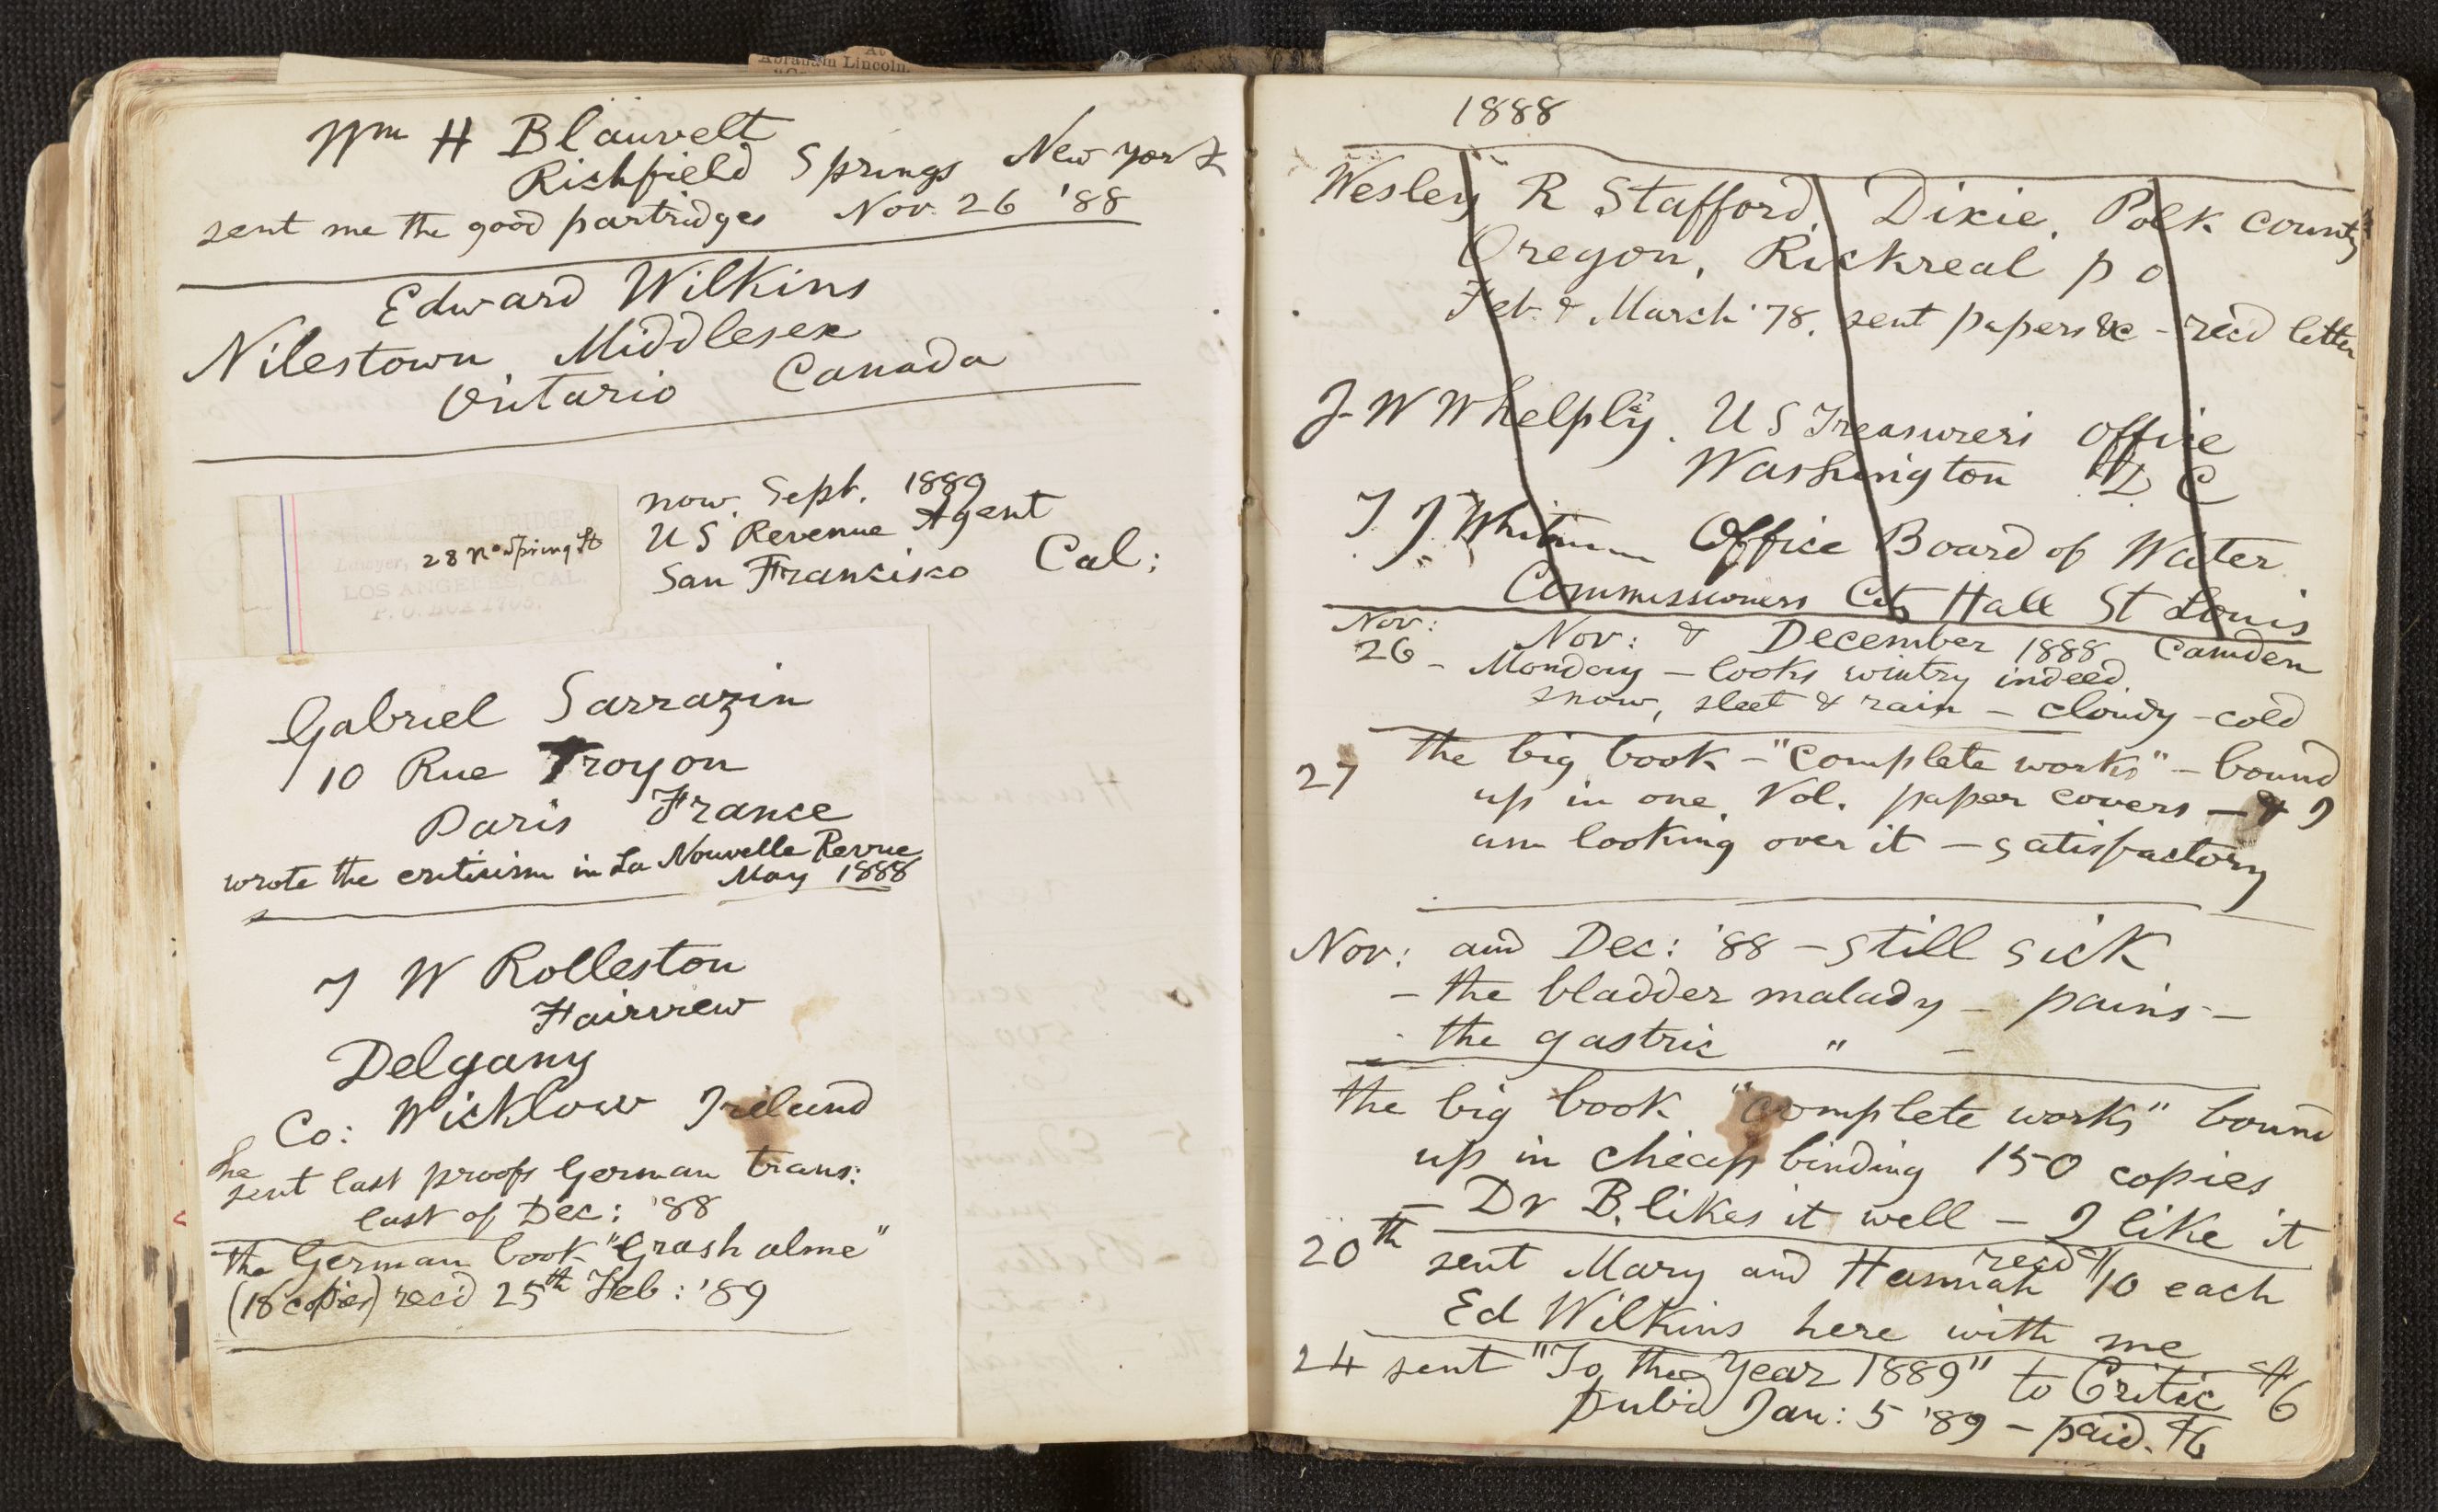 Abraham Lincoln.
Wm H Blauvelt
Richfield Springs New York
sent me the good partridges Nov. 26 '88
Edward Wilkins
Nilestown Middlesex
Ontario Canada
Lawyer, 28 No Spring St
LOS ANGELES, CAL.
P. O. BOX 1705.
now. Sept. 1889
U S Revenue Agent
San Francisco Cal:
Gabriel Sarrazin
10 Rue Troyon
Paris France
wrote the criticism in La Nouvelle Revue
May 1888
T W Rolleston
Fairview
Delgany
Co: Wicklow Ireland
he
sent last proofs German trans:
last of Dec: '88
the German book "Grashalme"
(18 copies) rec'd 25th Feb: '89
1888
Wesley R Stafford, Dixie, Polk County
Oregon, Rickreal p o
Feb. & March '78, sent papers &c - rec'd letter
J W Whelply. U S Treasurers office
Washington D C
T J Whitman Office Board of Water
Commissioners City Hall St Louis
Nov: & December 1888 Camden
Nov:
26 - Monday - looks wintry indeed
snow, sleet & rain - cloudy - cold
27 the big book - "complete works" - bound
up in one Vol. paper covers - & I
am looking over it - satisfactory
Nov: and Dec: '88 - still sick
- the bladder malady - pains -
- the gastric " -
the big book "complete works" bound
up in cheap binding 150 copies
- Dr B. likes it well - I like it
20th sent Mary and Hannah $10 each
rec'd
Ed Wilkins here with me
24 sent "To the Year 1889" to Critic $6
pub'd Jan: 5 '89 - paid. $6